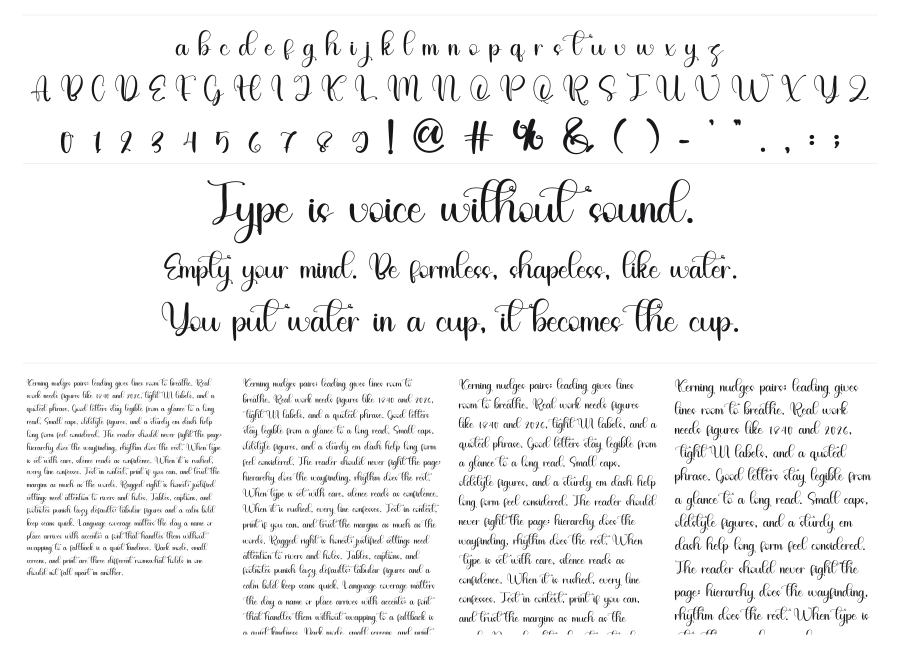 a b c d e f g h i j k l m n o p q r s t u v w x y z
A B C D E F G H I J K L M N O P Q R S T U V W X Y Z
0 1 2 3 4 5 6 7 8 9 ! @ # % & ( ) - ' " . , : ;
Type is voice without sound.
Empty your mind. Be formless, shapeless, like water.
You put water in a cup, it becomes the cup.
Kerning nudges pairs; leading gives lines room to breathe. Real
work needs figures like 18:40 and 2026, tight UI labels, and a
quoted phrase. Good letters stay legible from a glance to a long
read. Small caps, oldstyle figures, and a sturdy em dash help
long form feel considered. The reader should never fight the page:
hierarchy does the wayfinding, rhythm does the rest. When type
is set with care, silence reads as confidence. When it is rushed,
every line confesses. Test in context, print if you can, and trust the
margins as much as the words. Ragged right is honest; justified
setting needs attention to rivers and holes. Tables, captions, and
footnotes punish lazy defaults; tabular figures and a calm bold
keep scans quick. Language coverage matters the day a name or
place arrives with accents; a font that handles them without
swapping to a fallback is a quiet kindness. Dark mode, small
screens, and print are three different rooms; what holds in one
should not fall apart in another.
Kerning nudges pairs; leading gives lines room to
breathe. Real work needs figures like 18:40 and 2026,
tight UI labels, and a quoted phrase. Good letters
stay legible from a glance to a long read. Small caps,
oldstyle figures, and a sturdy em dash help long form
feel considered. The reader should never fight the page:
hierarchy does the wayfinding, rhythm does the rest.
When type is set with care, silence reads as confidence.
When it is rushed, every line confesses. Test in context,
print if you can, and trust the margins as much as the
words. Ragged right is honest; justified setting needs
attention to rivers and holes. Tables, captions, and
footnotes punish lazy defaults; tabular figures and a
calm bold keep scans quick. Language coverage matters
the day a name or place arrives with accents; a font
that handles them without swapping to a fallback is
a quiet kindness. Dark mode, small screens, and print
Kerning nudges pairs; leading gives lines
room to breathe. Real work needs figures
like 18:40 and 2026, tight UI labels, and a
quoted phrase. Good letters stay legible from
a glance to a long read. Small caps,
oldstyle figures, and a sturdy em dash help
long form feel considered. The reader should
never fight the page: hierarchy does the
wayfinding, rhythm does the rest. When
type is set with care, silence reads as
confidence. When it is rushed, every line
confesses. Test in context, print if you can,
and trust the margins as much as the
Kerning nudges pairs; leading gives
lines room to breathe. Real work
needs figures like 18:40 and 2026,
tight UI labels, and a quoted
phrase. Good letters stay legible from
a glance to a long read. Small caps,
oldstyle figures, and a sturdy em
dash help long form feel considered.
The reader should never fight the
page: hierarchy does the wayfinding,
rhythm does the rest. When type is